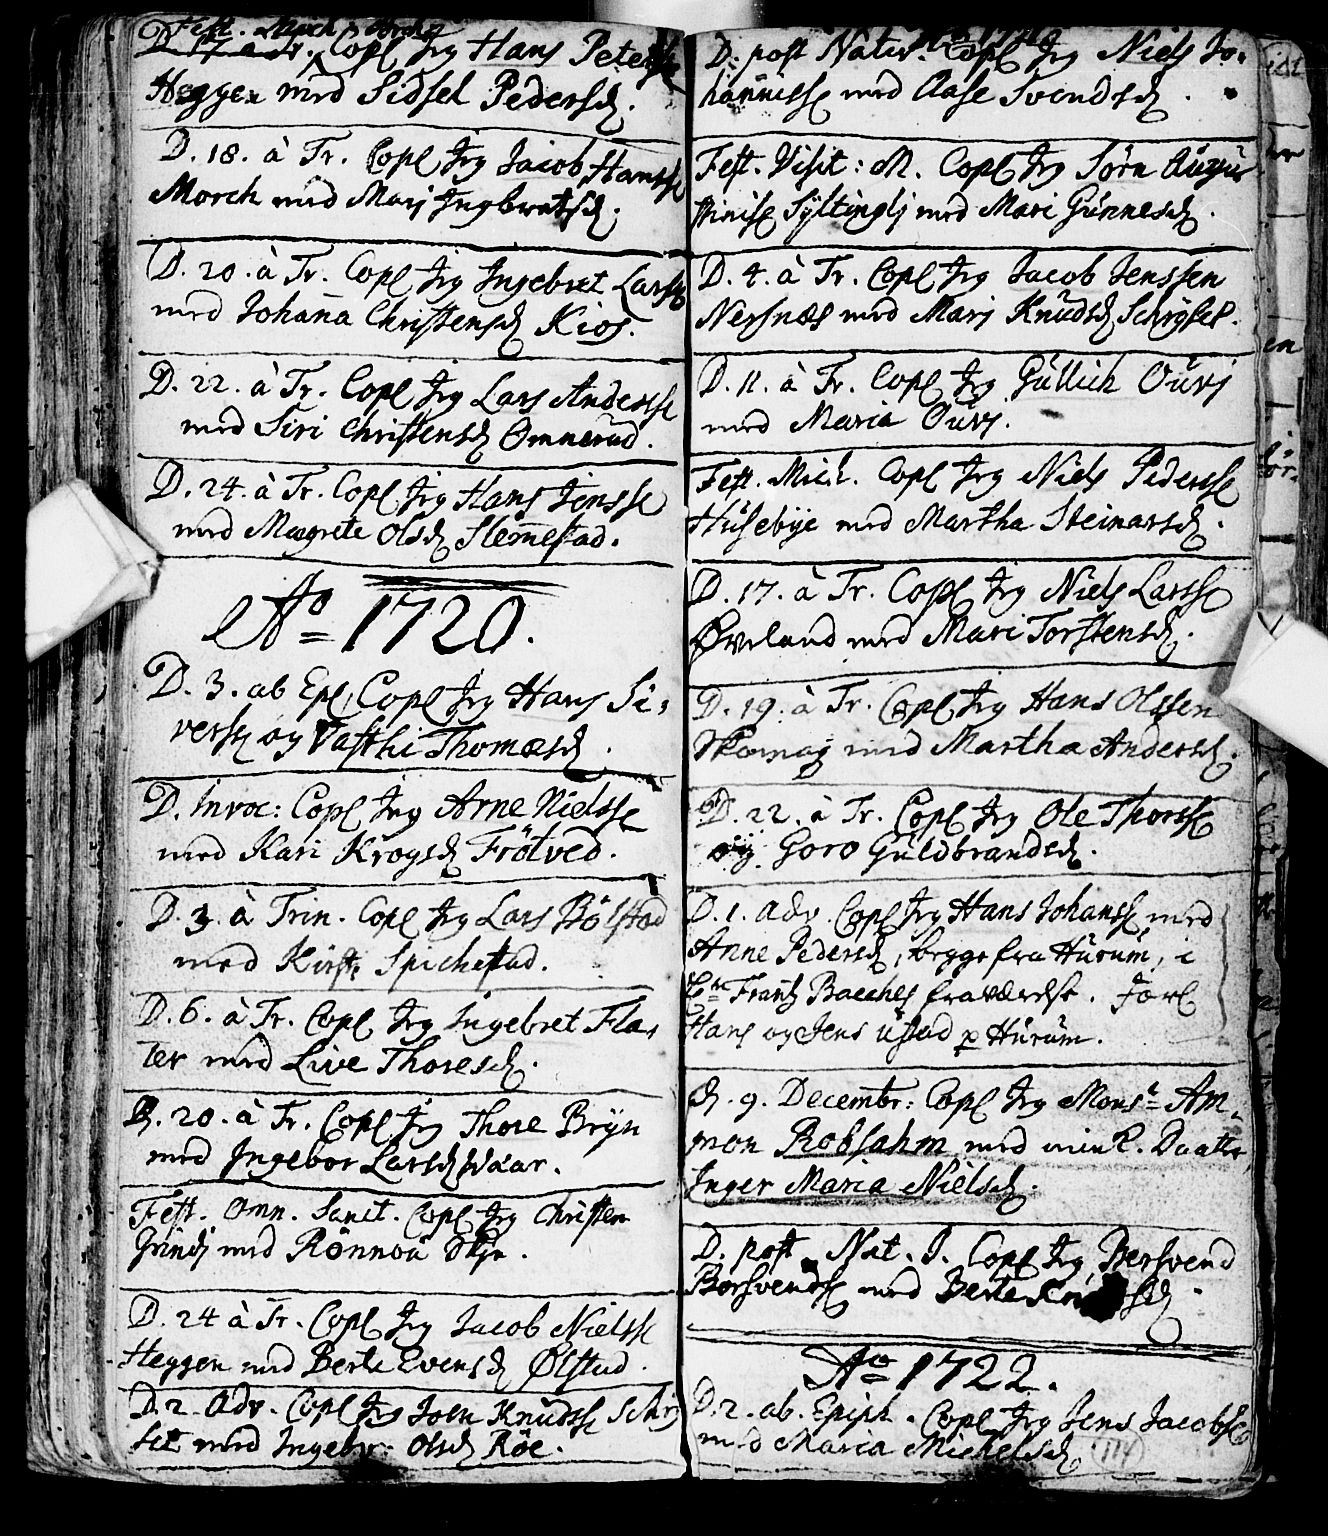 D. 17 a Tr. Copl Jeg Hans Peters
Heggen med Sidsel Pedersd.
D. 18. à Tr. Copl Jeg Jacob Hanss
Morch med Marj Ingbretsd.
D. 20. à Tr. Copl Jeg Ingebret Larss
med Johana Christensd Kios.
D. 22. à Tr. Copl Jeg Lars Anderss
med Siri Christensd Omnerud.
D. 24. à Tr. Copl Jeg Hans Jenss
med Magrete Olsd Slemestad.
Ao 1720.
D. 3. ab Epl, Copl Jeg Hans Si,
verss og Vasthi Thomasd.
D. Invoc: Copl Jeg Arne Nielss
med Kari Krogsd Frötved.
D. 3. à Trin. Copl Jeg Lars Bölstad
med Kirsti Spichestad.
D. 6. à Tr. Copl Jeg Ingebret Fla,
ter med Live Thoresd.
D. 20. à Tr. Copl Jeg Thore Bryn
med Ingebor Larsd
Fest. Omn. Sanct. Copl Jeg Christen
med Rönnou
D. 24 à Tr. Copl Jeg Jacob Nielss
Heggen med Berte Evensd Ølstad.
D. 2 Adv. Copl Jeg Joen Knudss
med Ingebor: Olsd Röe.
D. post Nativ. Copl Jeg Niels Jo,
hanniss med Aase Svendsd.
Fest. Visit: M. Copl Jeg Sörn Augus
tiniss Syltinglj med Mari Gunnesd.
D. 4. à Tr. Copl Jeg Jacob Jenssen
Nersnæs med Marj Knudsd Schrÿset.
D. 11. à Tr. Copl Jeg Gullich Ourj
med Maria Ourj.
Fest. Mich. Copl Jeg Niels Pederss
Husebÿe med Martha Steinarsd.
D. 17. à Tr. Copl Jeg Niels Larss
Øverland med Mari Torstensd.
D. 19. à Tr. Copl Jeg Hans Olssen
med Martha Andersd.
D. 22. à Tr. Copl Jeg Ole Thorss
og Goro Guldbrandsd.
D. 1. Adv. Copl Jeg Hans Johanss med
Anne Pedersd, begge fra Hurum, i
Hr Frantz Bacches fraværelse. Forl
Hans og Jens Ustad p Hurum.
d. 9. Decembr: Copl Jeg Monsr Am,
mon Robsahm med min K. Daatter
Inger Maria Nielsd.
D. post. Nat. D. Copl Jeg Bersvend
Borsvends med Berte
Ao 1722.
D. 2. ab. Epiph. Copl Jeg Jens Jacobss
med Maria Michelsd
114